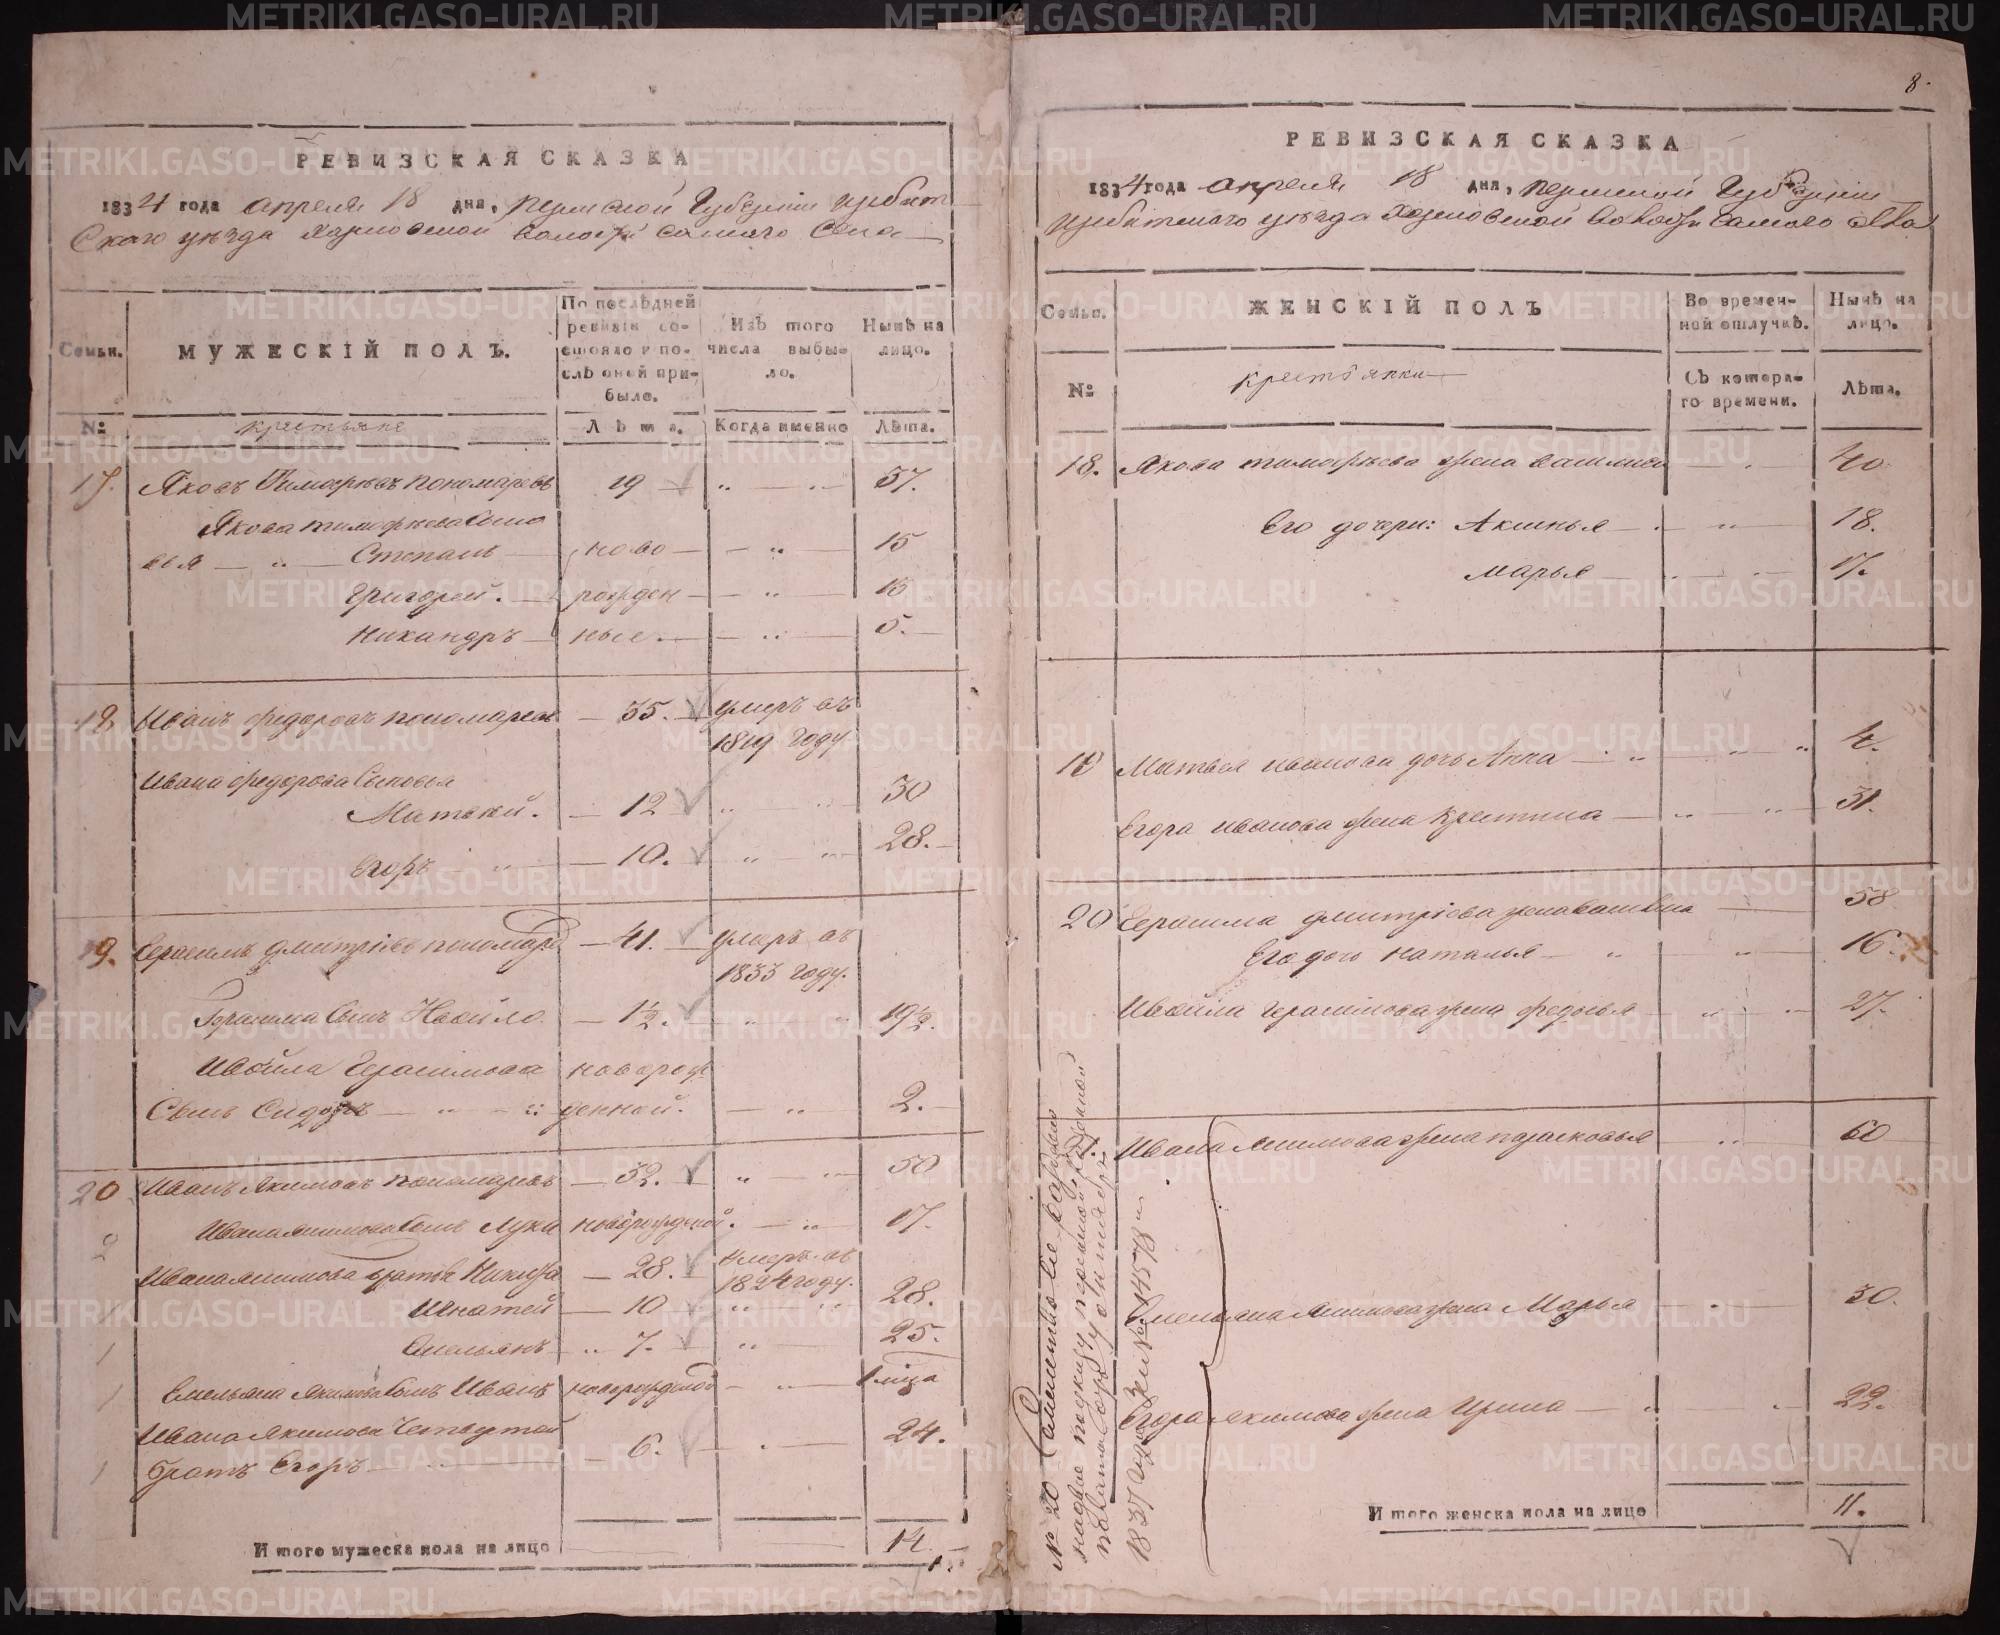 8.
РЕВИЗСКАЯ СКАЗКА
1834 года апреля 18 дня, Пермской Губернии Ирбит
скаго уезда Харловской волости самаго Села
Семьи.
МУЖЕСКІЙ ПОЛЪ.
По послѣдней ревизіи состояло и послѣ оной прибыло.
Изъ того числа выбыло.
Нынѣ на лицо.
№
крестьяне
Лѣта.
Когда именно
Лѣта.
17. Яковъ Тимофѣевъ Пономаревъ 19 — „ — „ — 37.
Якова Тимофѣева сыно
вья — „ — Степанъ — ново — „ — 15
Григорей. — рожден — „ — 13
Никандръ — ные. — „ — 5.
18 Иванъ Федоровъ Пономаревъ — 35. — умеръ въ
1819 году
Ивана Федорова Сыновья
Матвей. — 12 „ — „ 30
Егоръ — „ — 10. „ — „ 28.
19. Герасимъ Дмитріевъ Пономарев — 41. — умеръ въ
1833 году.
Герасима Сынъ Ивойло — 1½. — „ — „ 19½.
Ивойла Герасимова новорож
Сынъ Сидоръ — „ — „ денной. — „ — 2.
20 Иванъ Якимовъ Пономаревъ — 32. — „ — „ — 50
Ивана Якимова Сынъ Лука новорожденой. — „ — 17.
2
Ивана Якимова братья Никита — 28. — умеръ въ
1824 году.
1 Игнатей — 10 — „ „ 28.
1 Емельянъ — „ 7. — „ — 25.
1 Емельяна Якимова Сынъ Иванъ новорожденой — „ — 1 мца
Ивана Якимова Четвертой
1 братъ Егоръ — — 6. — „ — 24.
Итого мужеска пола на лицо 14.
РЕВИЗСКАЯ СКАЗКА
1834 года апреля 18 дня, Пермской Губерніи
Ирбитскаго уезда Харловской волости самаго села
Семьи.
ЖЕНСКІЙ ПОЛЪ
Во временной отлучкѣ.
Нынѣ на лицо.
№
крестьянки
Съ котораго времени.
Лѣта.
18. Якова Тимофѣева жена Василиса — „ 40
Его дочери: Аксинья — „ — 18.
Марья — „ — 17.
19 Матвея Иванова дочь Анна — „ — „ 4.
Егора Иванова жена Крестина — „ — „ — 31.
20 Герасима Дмитріева жена Василиса — 58
Его дочь Наталья — „ — 16.
Ивойла Герасимова жена Федосья „ — „ 27.
Ивана Якимова жена Парасковья „ 60
Емельяна Якимова жена Марья — „ 30.
Егора Якимова жена Ирина — „ — „ 22.
Итого женска пола на лицо 11.
METRIKI.GASO-URAL.RU